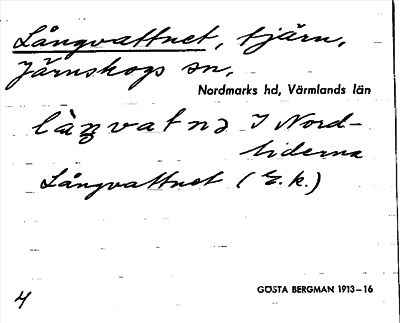 Långvattnet, tjärn,
Järnskogs sn,
Nordmarks hd, Värmlands län
Nord-
tiderna
Långvattnet (E.k.)
GÖSTA BERGMAN 1913–16
4